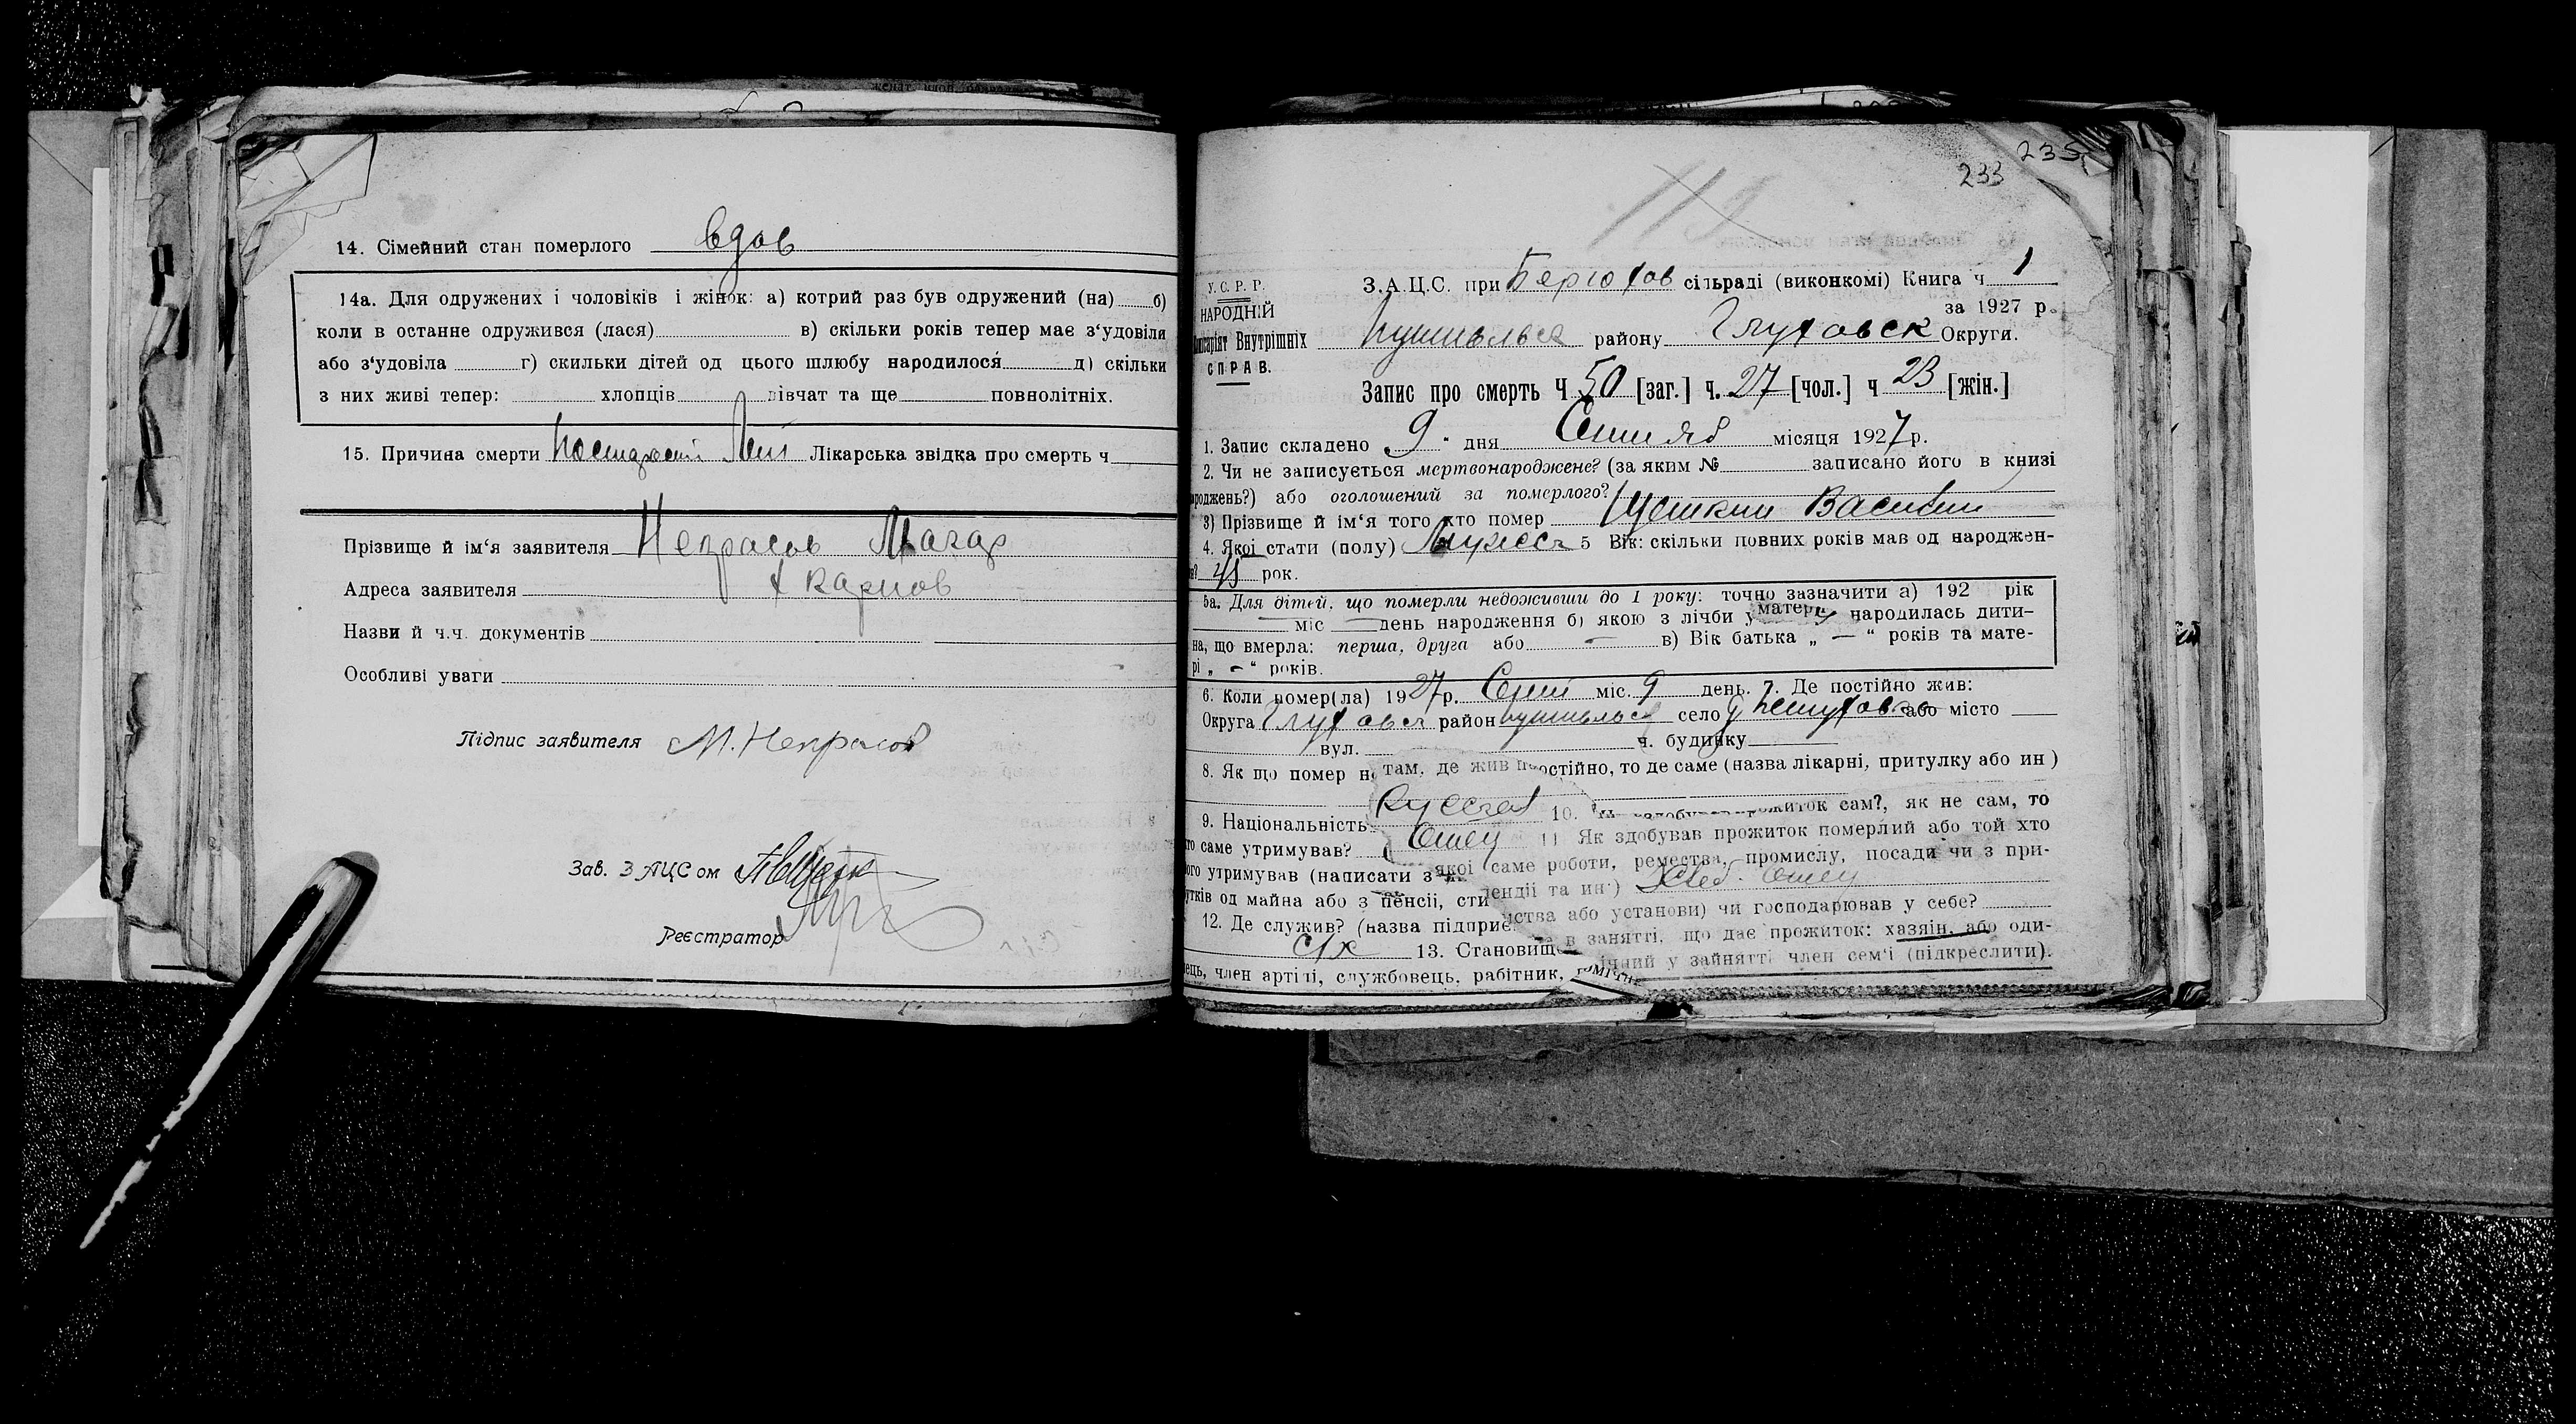 14. Сімейний стан померлого вдов
14а. Для одружених і чоловіків і жінок: а) котрий раз був одружений (на) б)
коли в останне одружився (лася) в) скільки років тепер має з‘удовіли
або з‘удовіла г) скильки дітей од цього шлюбу народилося д) скільки
з них живі тепер: хлопців дівчат та ще повнолітніх.
15. Причина смерти Лікарська звідка про смерть ч
Прізвище й ім‘я заявителя Некрасов Макар
Адреса заявителя х Карпов
Назви й ч.ч. документів
Особливі уваги
Підпис заявителя М. Некрасов
Зав. ЗАЦСом
Реєстратор
235
233
119
У. С. Р. Р.
НАРОДНІЙ
Внутрішніх
СПРАВ.
З.А.Ц.С. при Берюхов сільраді (виконкомі) Книга ч 1
за 1927 р.
Путивльск району Глуховск Округи.
Запис про смерть Ч 50 [заг.] ч. 27 [чол.] ч 23 [жін.]
1. Запис складено 9 дня Сентяб місяця 1927 р.
2. Чи не записується мертвонароджене? (за яким № записано його в книзі
роджень?) або оголошений за померлого?
3) Прізвище й ім‘я того хто помер Василий
4. Якої стати (полу) Мужеск 5 Вік: скільки повних років мав од народжен-
рок.
5а. Для дітей, що померли недоживши до 1 року: точно зазначити а) 192 рік
міс день народження б) якою з лічби у матері народилась дити-
на, що вмерла: перша, друга або — в) Вік батька „ — “ років та мате-
рі „ — “ років.
6. Коли помер(ла) 1927 р. Сент міс. 9 день. 7. Де постійно жив:
Округа Глуховск район Путивльск село або місто
вул. ч. будинку
8. Як що помер не там, де жив постійно, то де саме (назва лікарні, притулку або ин)
9. Національність Русская 10. прожиток сам?, як не сам, то
то саме утримував? Отец 11 Як здобував прожиток померлий або той хто
ого утримував (написати з якої саме роботи, ремества, промислу, посади чи з при-
утків од майна або з пенсії, стипендії та ин) Хлеб. отец
12. Де служив? (назва підприємства або установи) чи господарював у себе?
с/х 13. Становище в занятті, що дає прожиток: хазяін, або оди-
нець, член артілі, службовець, рабітник, помічний у зайнятті член сем‘ї (підкреслити).